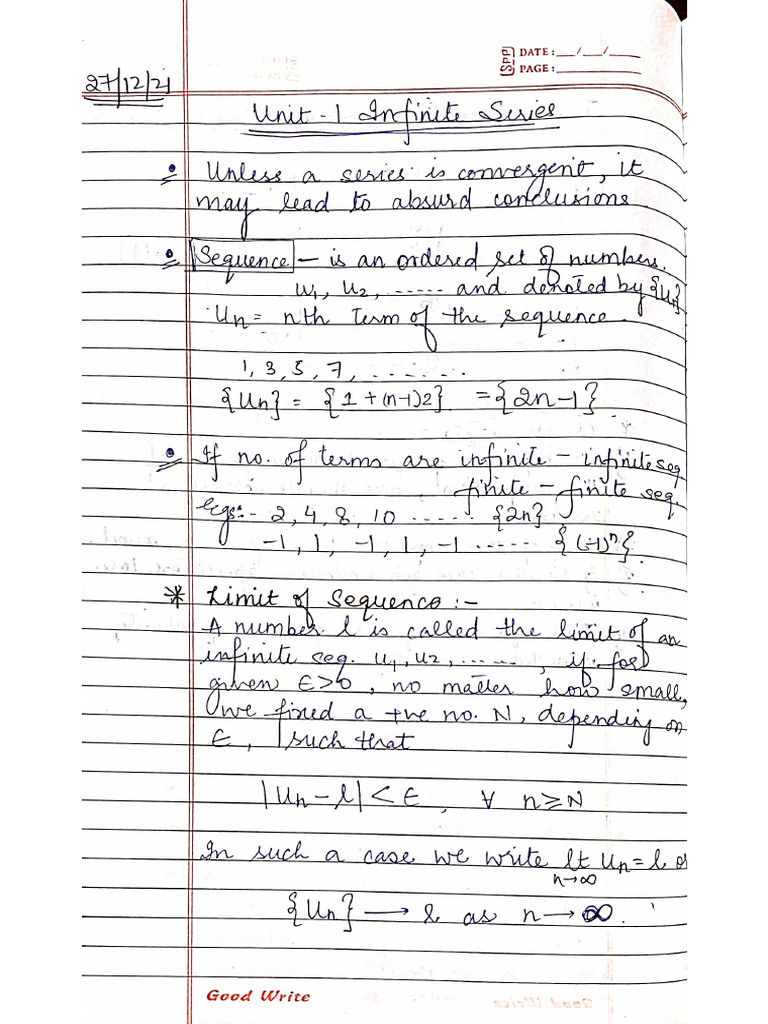 SPP DATE: __/__/__
PAGE: ______
27/12/21
Unit - 1 Infinite Series
• Unless a series is convergent, it
may lead to absurd conclusions
• Sequence - is an ordered set of numbers.
u₁, u₂, ..... and denoted by {Un}
Un = nth term of the sequence.
1, 3, 5, 7, .......
{Un} = {1 + (n-1)2} = {2n-1}
• If no. of terms are infinite - infinite seq
finite - finite seq.
egs:- 2, 4, 8, 10 ..... {2n}
-1, 1, -1, 1, -1 ..... {(-1)ⁿ}
* Limit of Sequence :-
A number l is called the limit of an
infinite seq. u₁, u₂, ......, if for
given ϵ>0, no matter how small,
we fixed a +ve no. N, depending on
ϵ, such that
|Un - l| < ϵ, ∀ n ≥ N
In such a case we write lt Un = l or
n→∞
{Un} → l as n → ∞.
Good Write